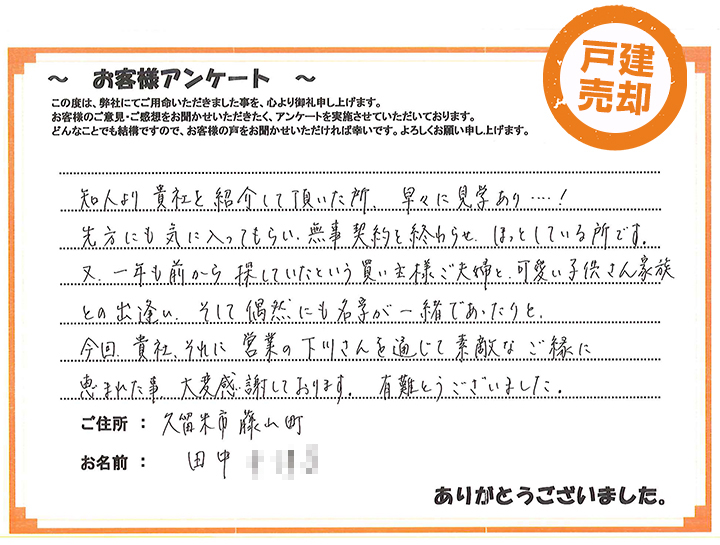 戸建
売却
～ お客様アンケート ～
この度は、弊社にてご用命いただきました事を、心より御礼申し上げます。
お客様のご意見・ご感想をお聞かせいただきたく、アンケートを実施させていただいております。
どんなことでも結構ですので、お客様の声をお聞かせいただければ幸いです。よろしくお願い申し上げます。
知人より貴社を紹介して頂いた所、早々に見学あり…！
先方にも気に入ってもらい、無事契約を終わらせ、ほっとしている所です。
又、一年も前から探していたという買い主様ご夫婦と、可愛い子供さん家族
との出逢い、そして偶然にも名字が一緒であったりと、
今回、貴社、それに営業の下川さんを通じて素敵なご縁に
恵まれた事、大変感謝しております。有難とうございました。
ご住所 ： 久留米市藤山町
お名前 ： 田中
ありがとうございました。